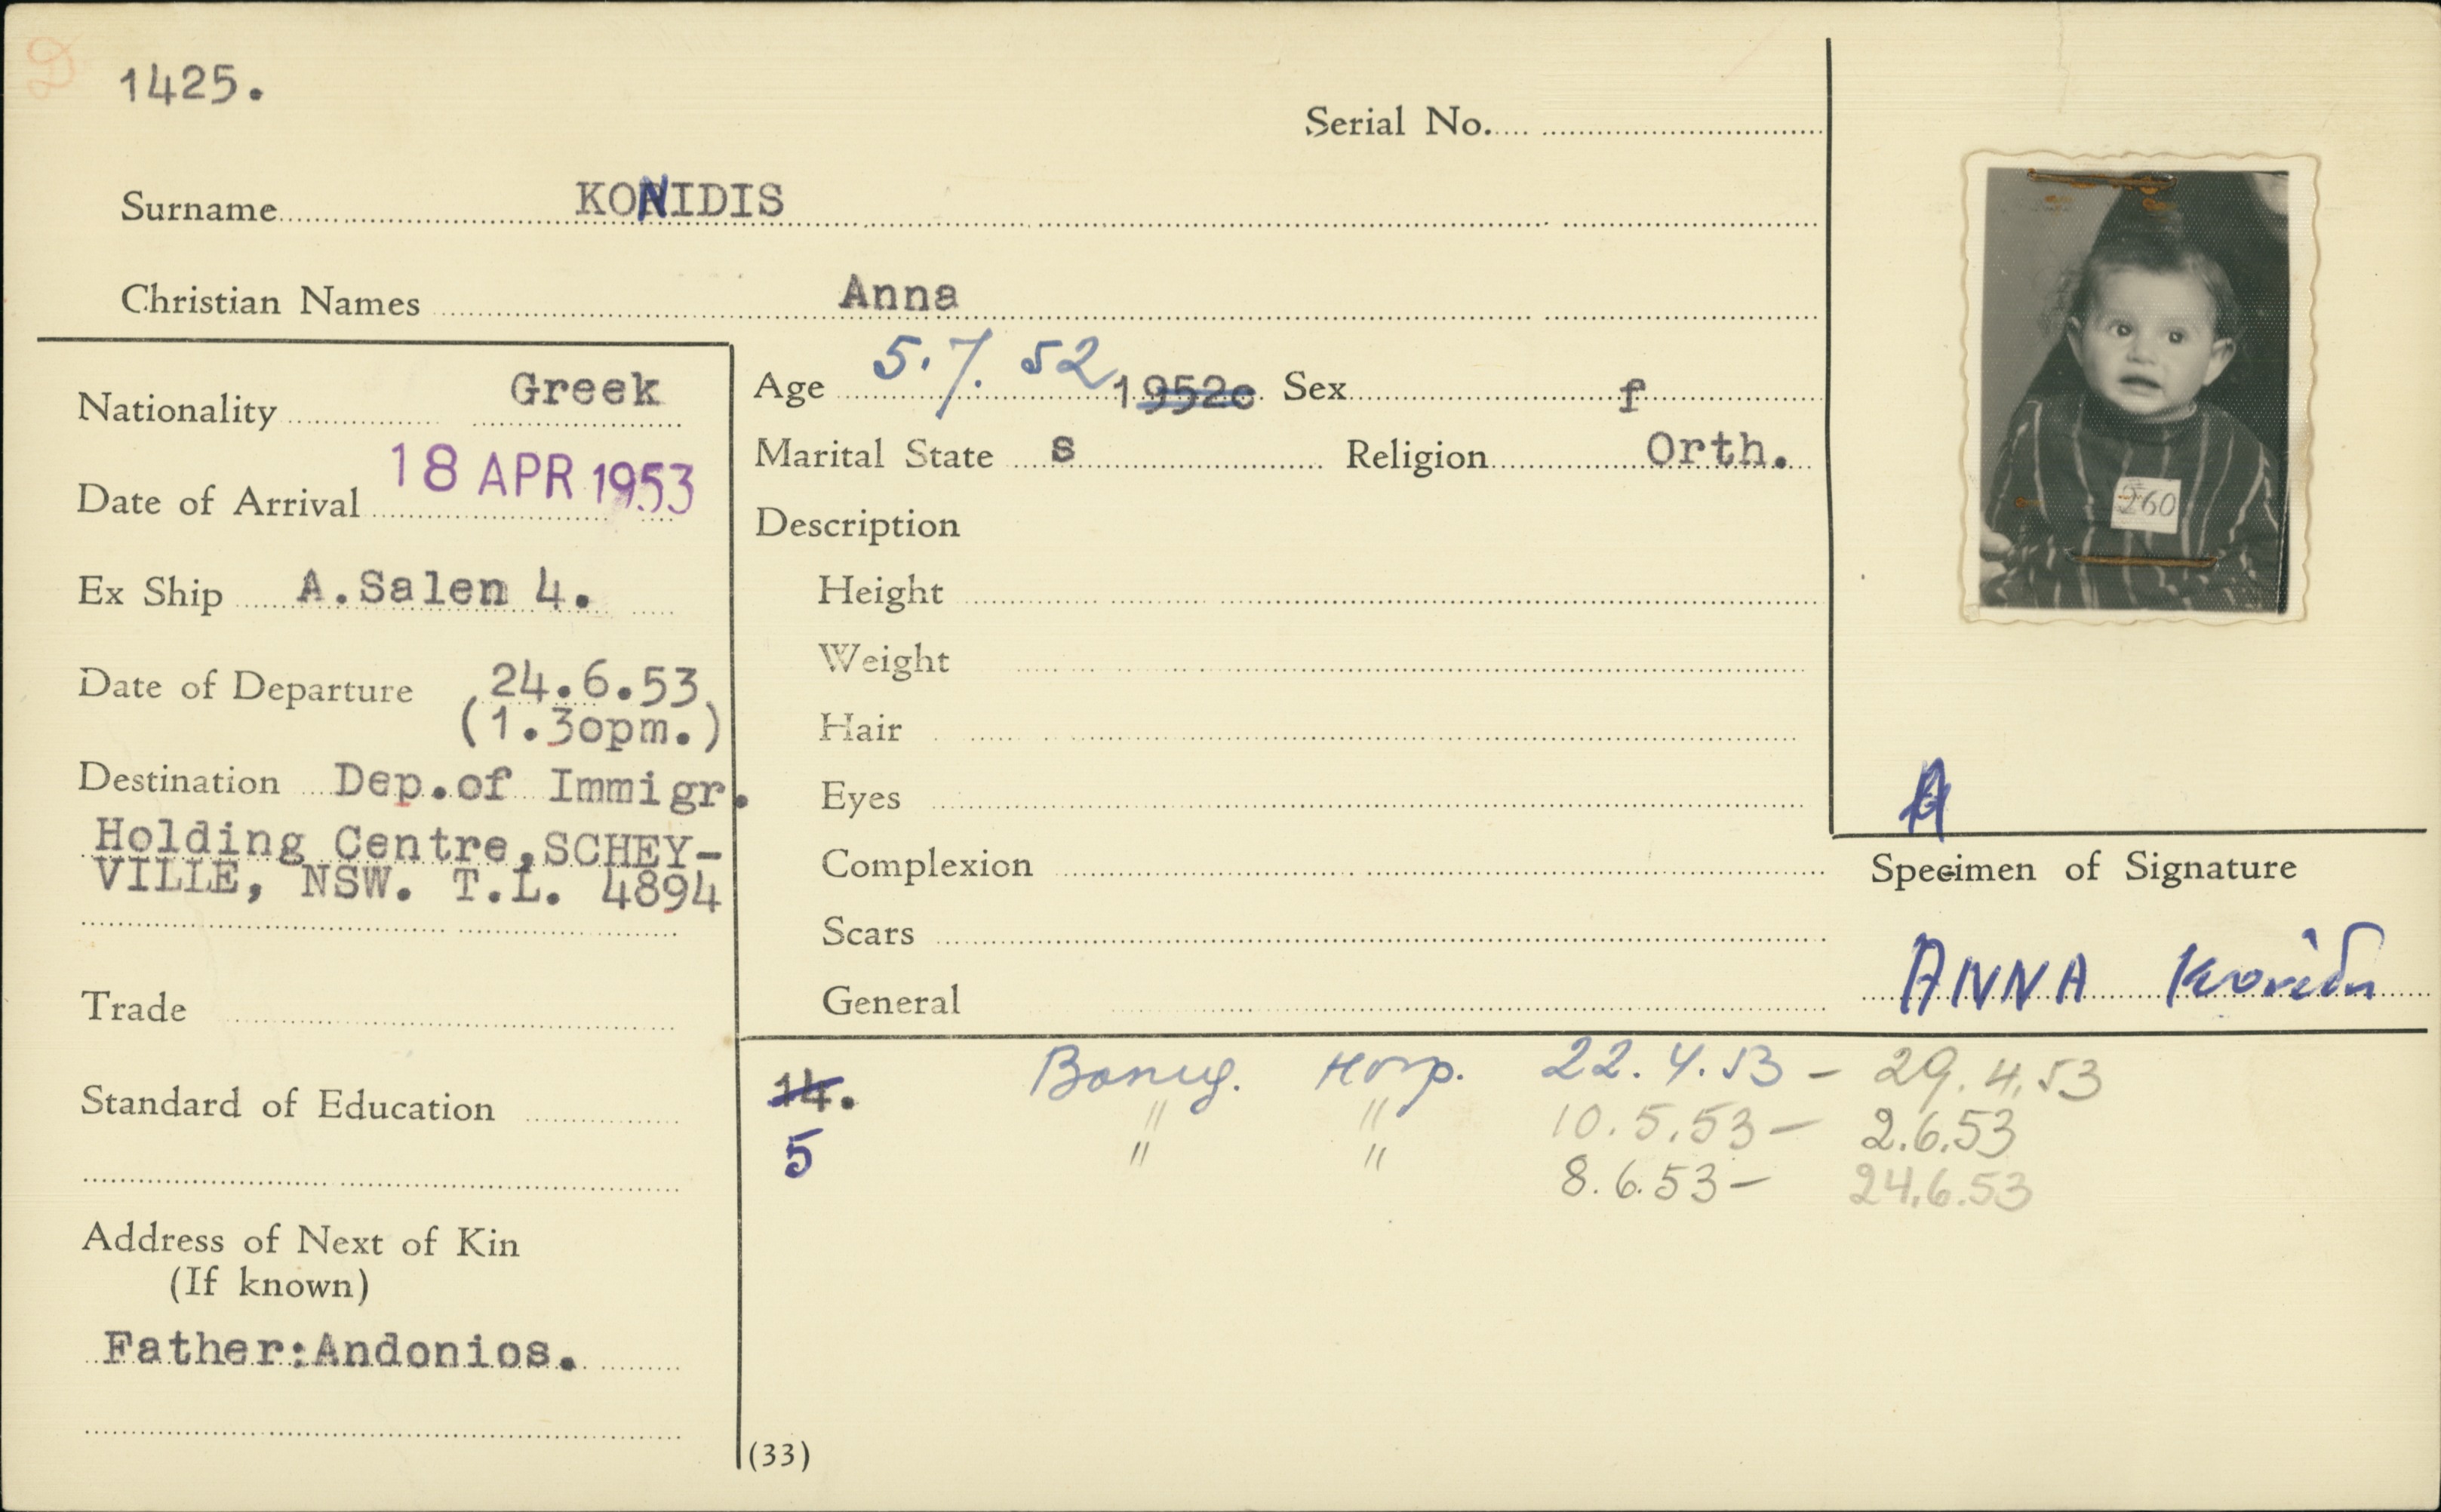 D
1425.
Serial No.
Surname KONIDIS
Christian Names Anna
Nationality Greek
Date of Arrival 18 APR 1953
Ex Ship A.Salen 4.
Date of Departure 24.6.53
(1.30pm.)
Destination Dep.of Immigr.
Holding Centre,SCHEY-
VILLE, NSW. T.L. 4894
Trade
Standard of Education
Address of Next of Kin
(If known)
Father:Andonios.
Age 5.7.52 1952c Sex f
Marital State s Religion Orth.
Description
Height
Weight
Hair
Eyes
Complexion
Scars
General
260
A
Specimen of Signature
ANNA
14. Hosp. 22.4.53 - 29.4.53
" " 10.5.53 - 2.6.53
5 " " 8.6.53 - 24.6.53
(33)